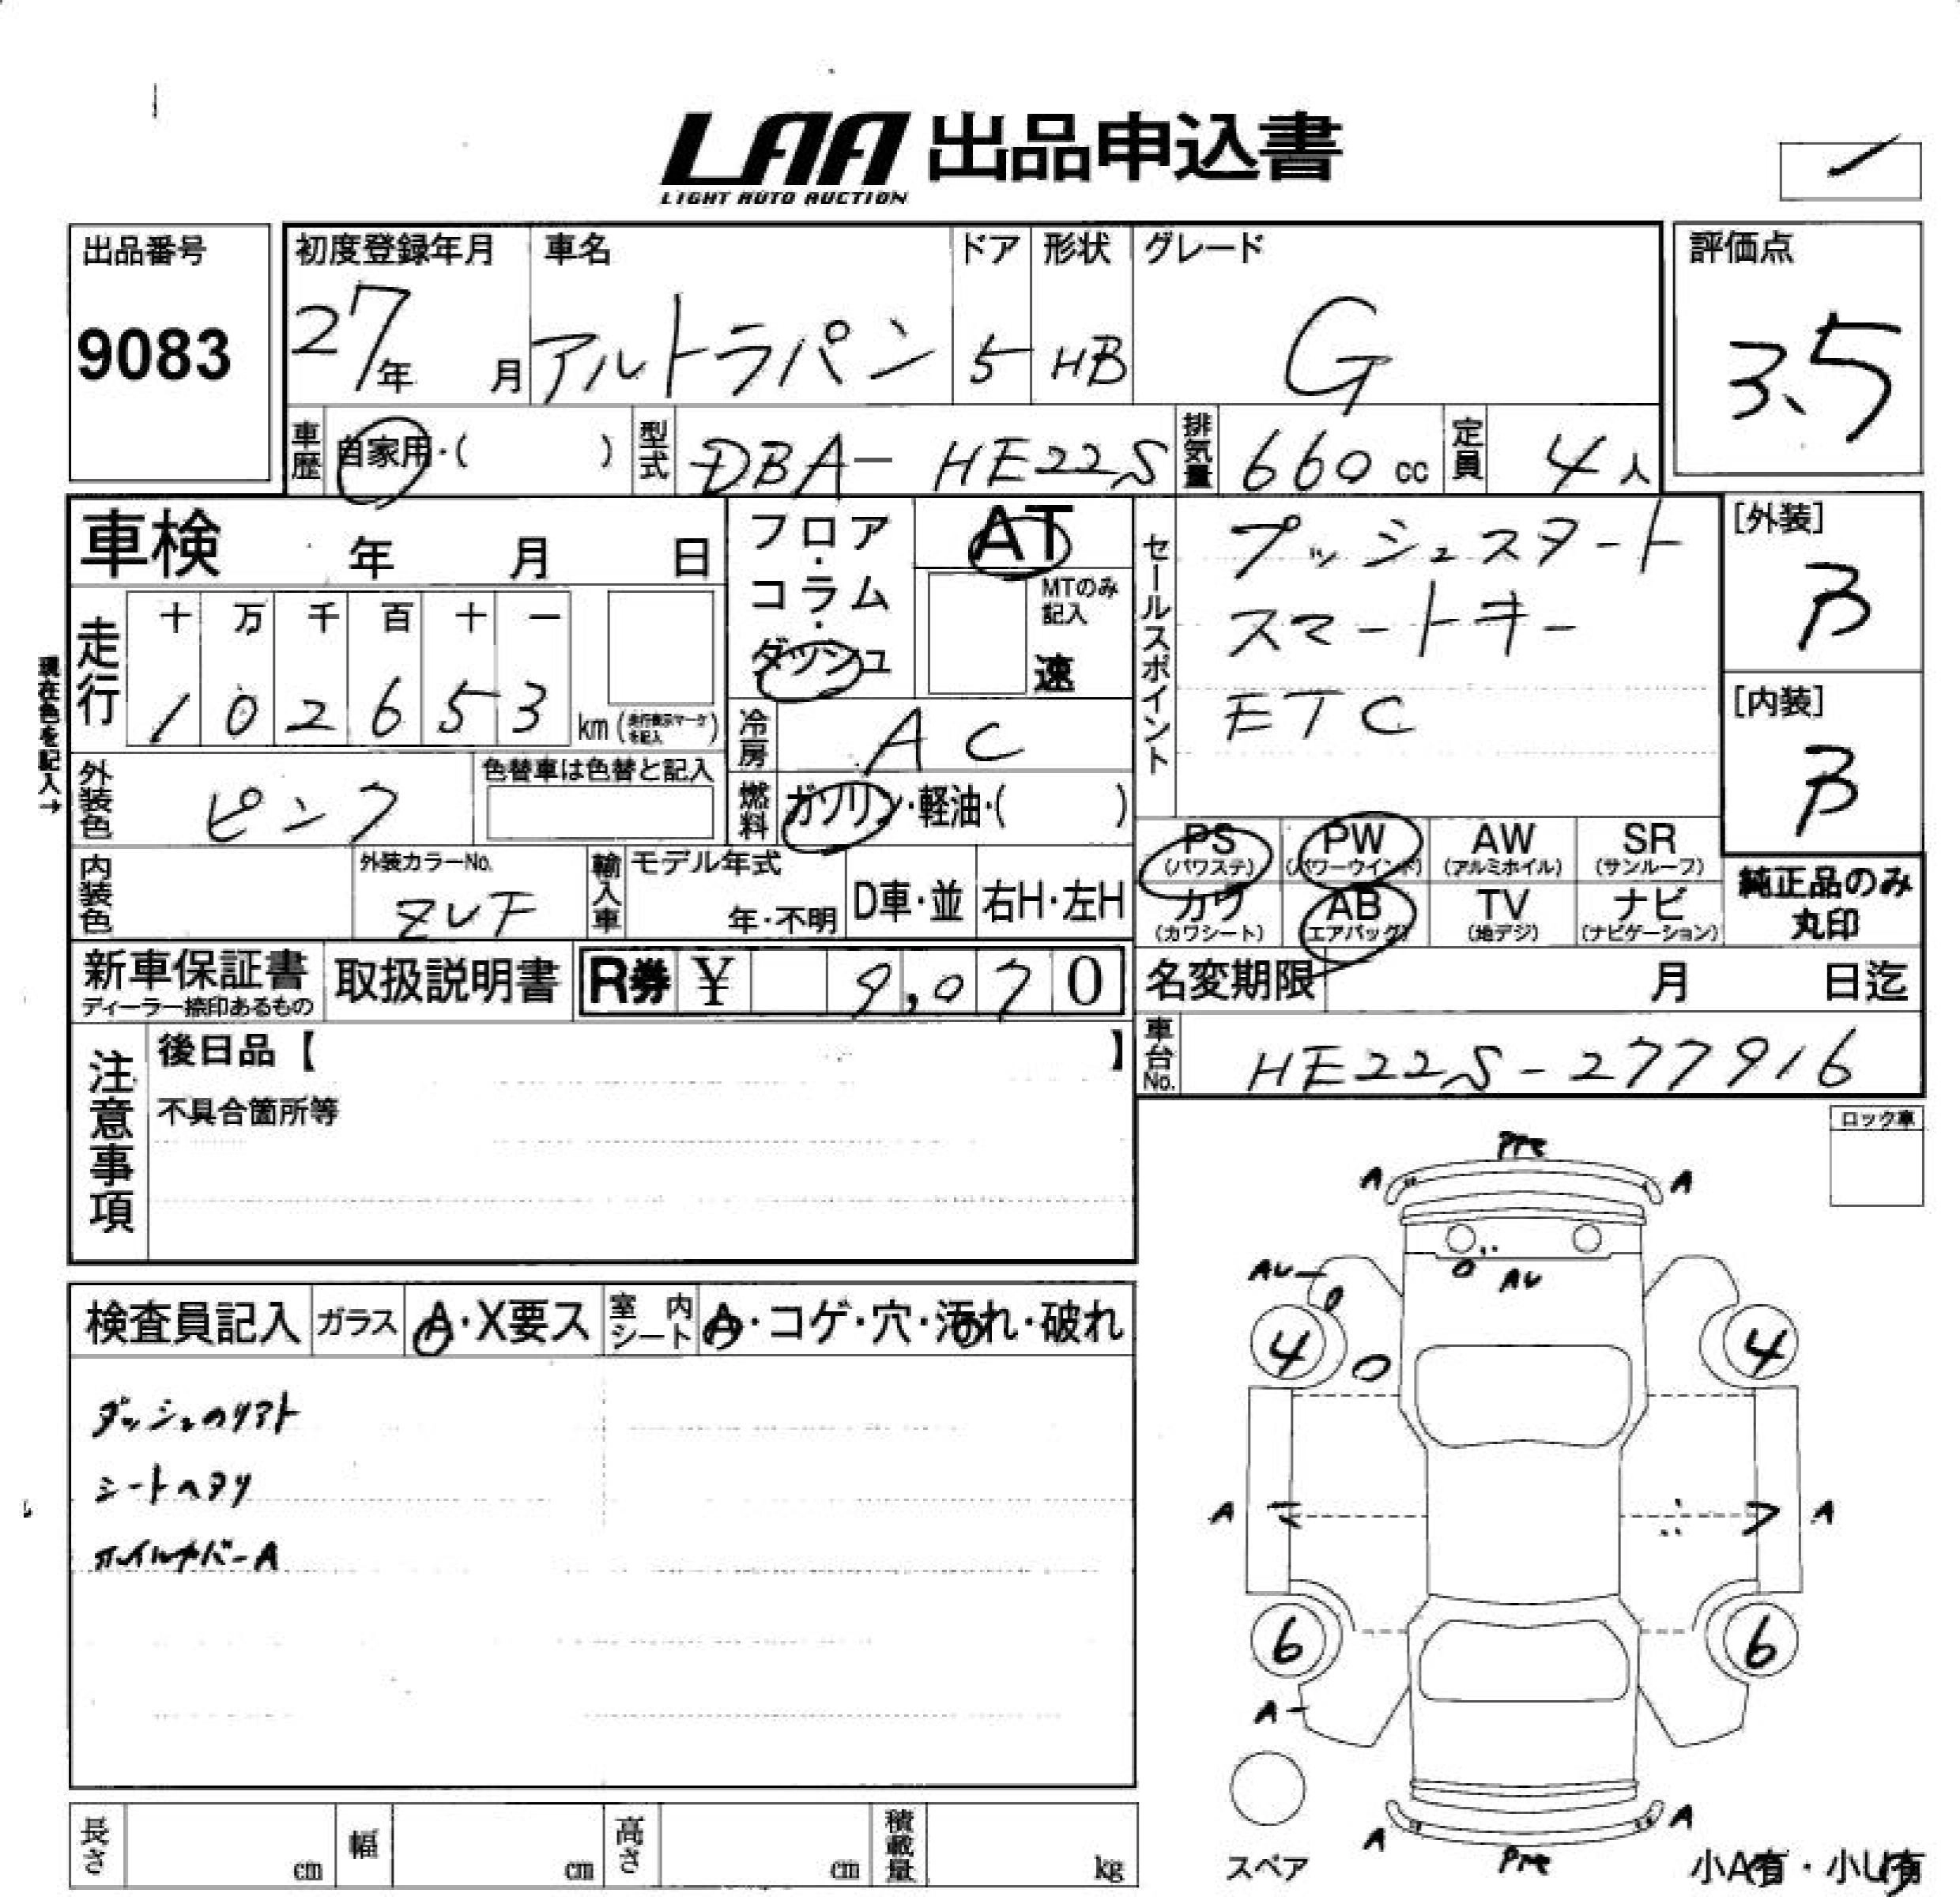 LAA 出品申込書
LIGHT AUTO AUCTION
出品番号
9083
初度登録年月
27年 月
車名
アルトラパン
ドア
5
形状
HB
グレード
G
評価点
3.5
車歴 自家用・( )
型式 DBA- HE22S
排気量 660 cc
定員 4人
車検 年 月 日
フロア・コラム・ダッシュ
AT
MTのみ記入
速
セールスポイント
プッシュスタート
スマートキー
ETC
[外装]
B
[内装]
B
現在色を記入→
走行
十 万 千 百 十 一
1 0 2 6 5 3
km (走行表示マークを記入)
冷房 AC
外装色 ピンク
色替車は色替と記入
燃料 ガソリン・軽油・( )
PS (パワステ)
PW (パワーウインド)
AW (アルミホイル)
SR (サンルーフ)
内装色
外装カラーNo.
ZVF
輸入車
モデル年式
年・不明
D車・並
右H・左H
カワ (カワシート)
AB (エアバッグ)
TV (地デジ)
ナビ (ナビゲーション)
純正品のみ
丸印
新車保証書
ディーラー捺印あるもの
取扱説明書
R券 ¥ 9,070
名変期限 月 日迄
車台No. HE22S-277916
注意事項
後日品【 】
不具合箇所等
ロック車
検査員記入
ガラス A・X要ス
室内シート A・コゲ・穴・汚れ・破れ
ダッシュのリアト
シートヘタリ
ホイルカバーA
A A
AU
AU
4 4
A A
6 6
A
A A
スペア
小A有・小U有
長さ cm
幅 cm
高さ cm
積載量 kg